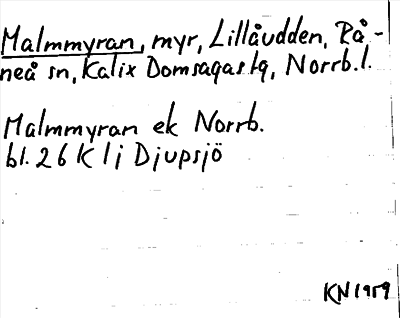 Malmmyran, myr, Lillåudden, Rå-
neå sn, Kalix Domsagas tg, Norrb. l.
Malmmyran ek Norrb.
bl. 26 K 1 j Djupsjö
KN 1959